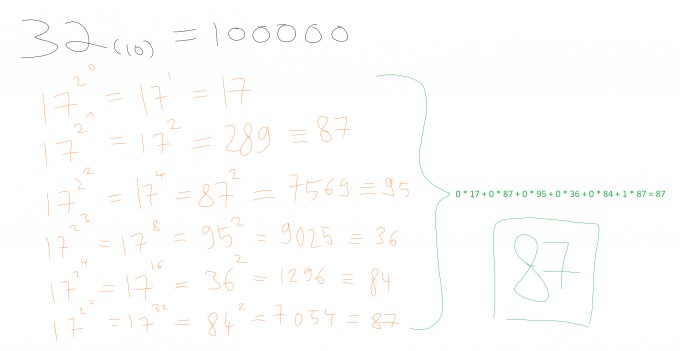 32₍₁₀₎ = 100000
17^2^0 = 17^1 = 17
17^2^1 = 17^2 = 289 ≡ 87
17^2^2 = 17^4 = 87^2 = 7569 ≡ 95
17^2^3 = 17^8 = 95^2 = 9025 ≡ 36
17^2^4 = 17^16 = 36^2 = 1296 ≡ 84
17^2^5 = 17^32 = 84^2 = 7054 = 87
0 * 17 + 0 * 87 + 0 * 95 + 0 * 36 + 0 * 84 + 1 * 87 = 87
87